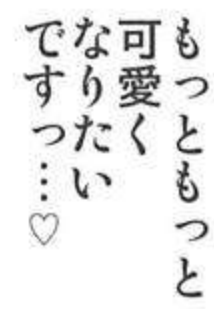 もっともっと
可愛く
なりたい
ですっ…♡